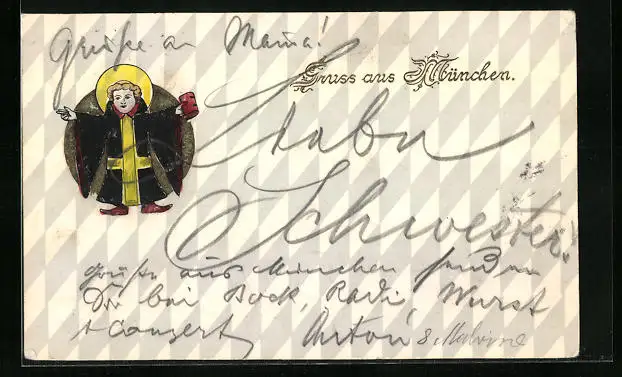 Grüße an Mama!
Gruss aus München.
Liebe
Schwester!
Grüße aus München
Dir bei Bock, Radi, Wurst
+ Conzert Anton & Malvine